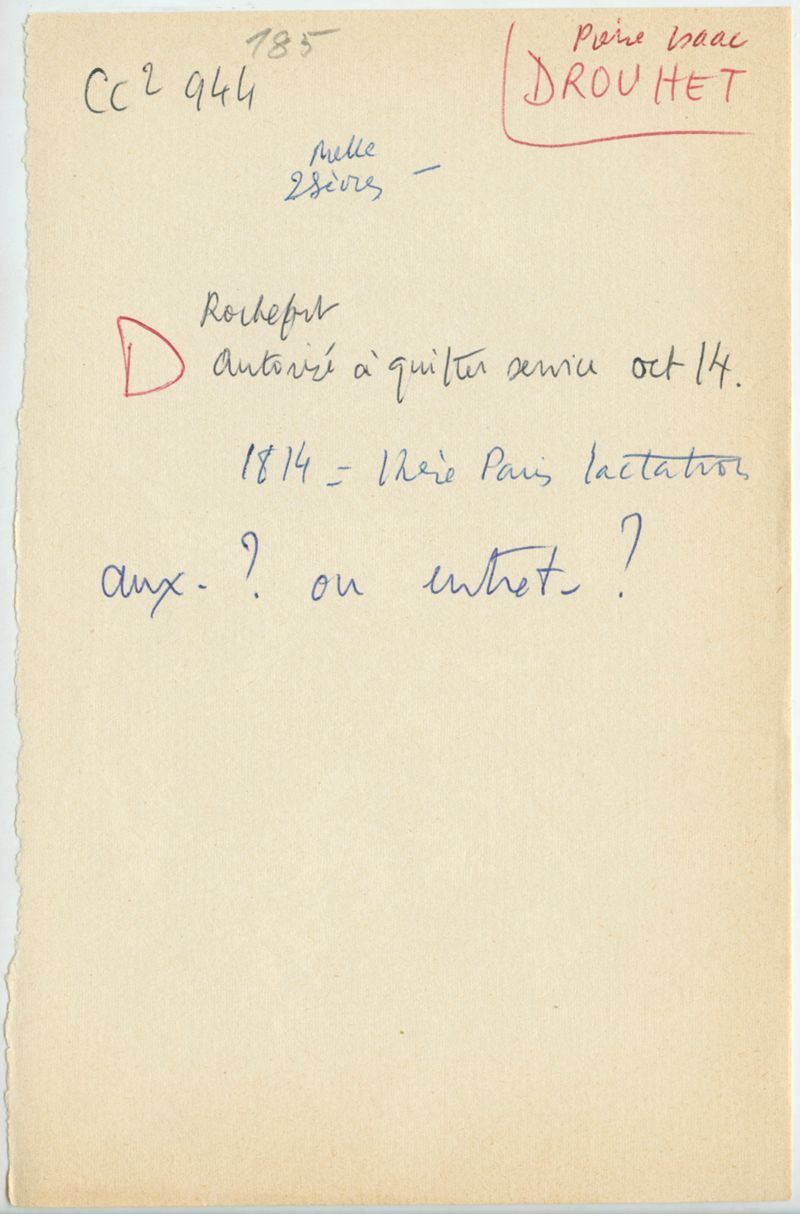 185
CC2 944
Pierre Isaac
DROUHET
Melle
2 Sèvres -
Rochefort
D Autorisé à quitter service oct 14.
1814 = thèse Paris lactation
aux. ? ou entret- ?